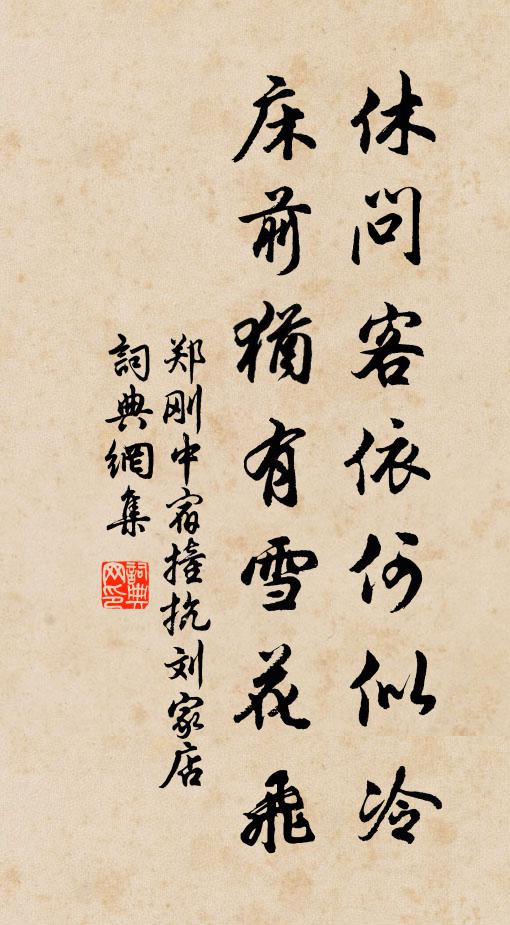 休问客依何似冷
床前犹有雪花飞
郑刚中宿擡抗刘家店
詞典網集
詞典网印